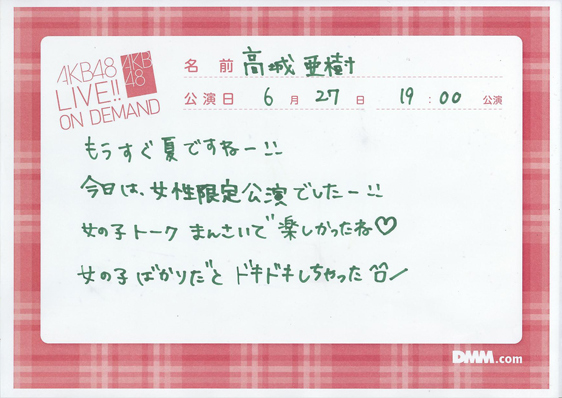 AKB48
LIVE!!
ON DEMAND
AKB
48
名前 高城 亜樹
公演日 6月27日 19:00 公演
もうすぐ夏ですねー!!
今日は、女性限定公演でしたー!!
女の子トーク まんさいで 楽しかったね♡
女の子ばかりだと ドキドキしちゃった
DMM.com